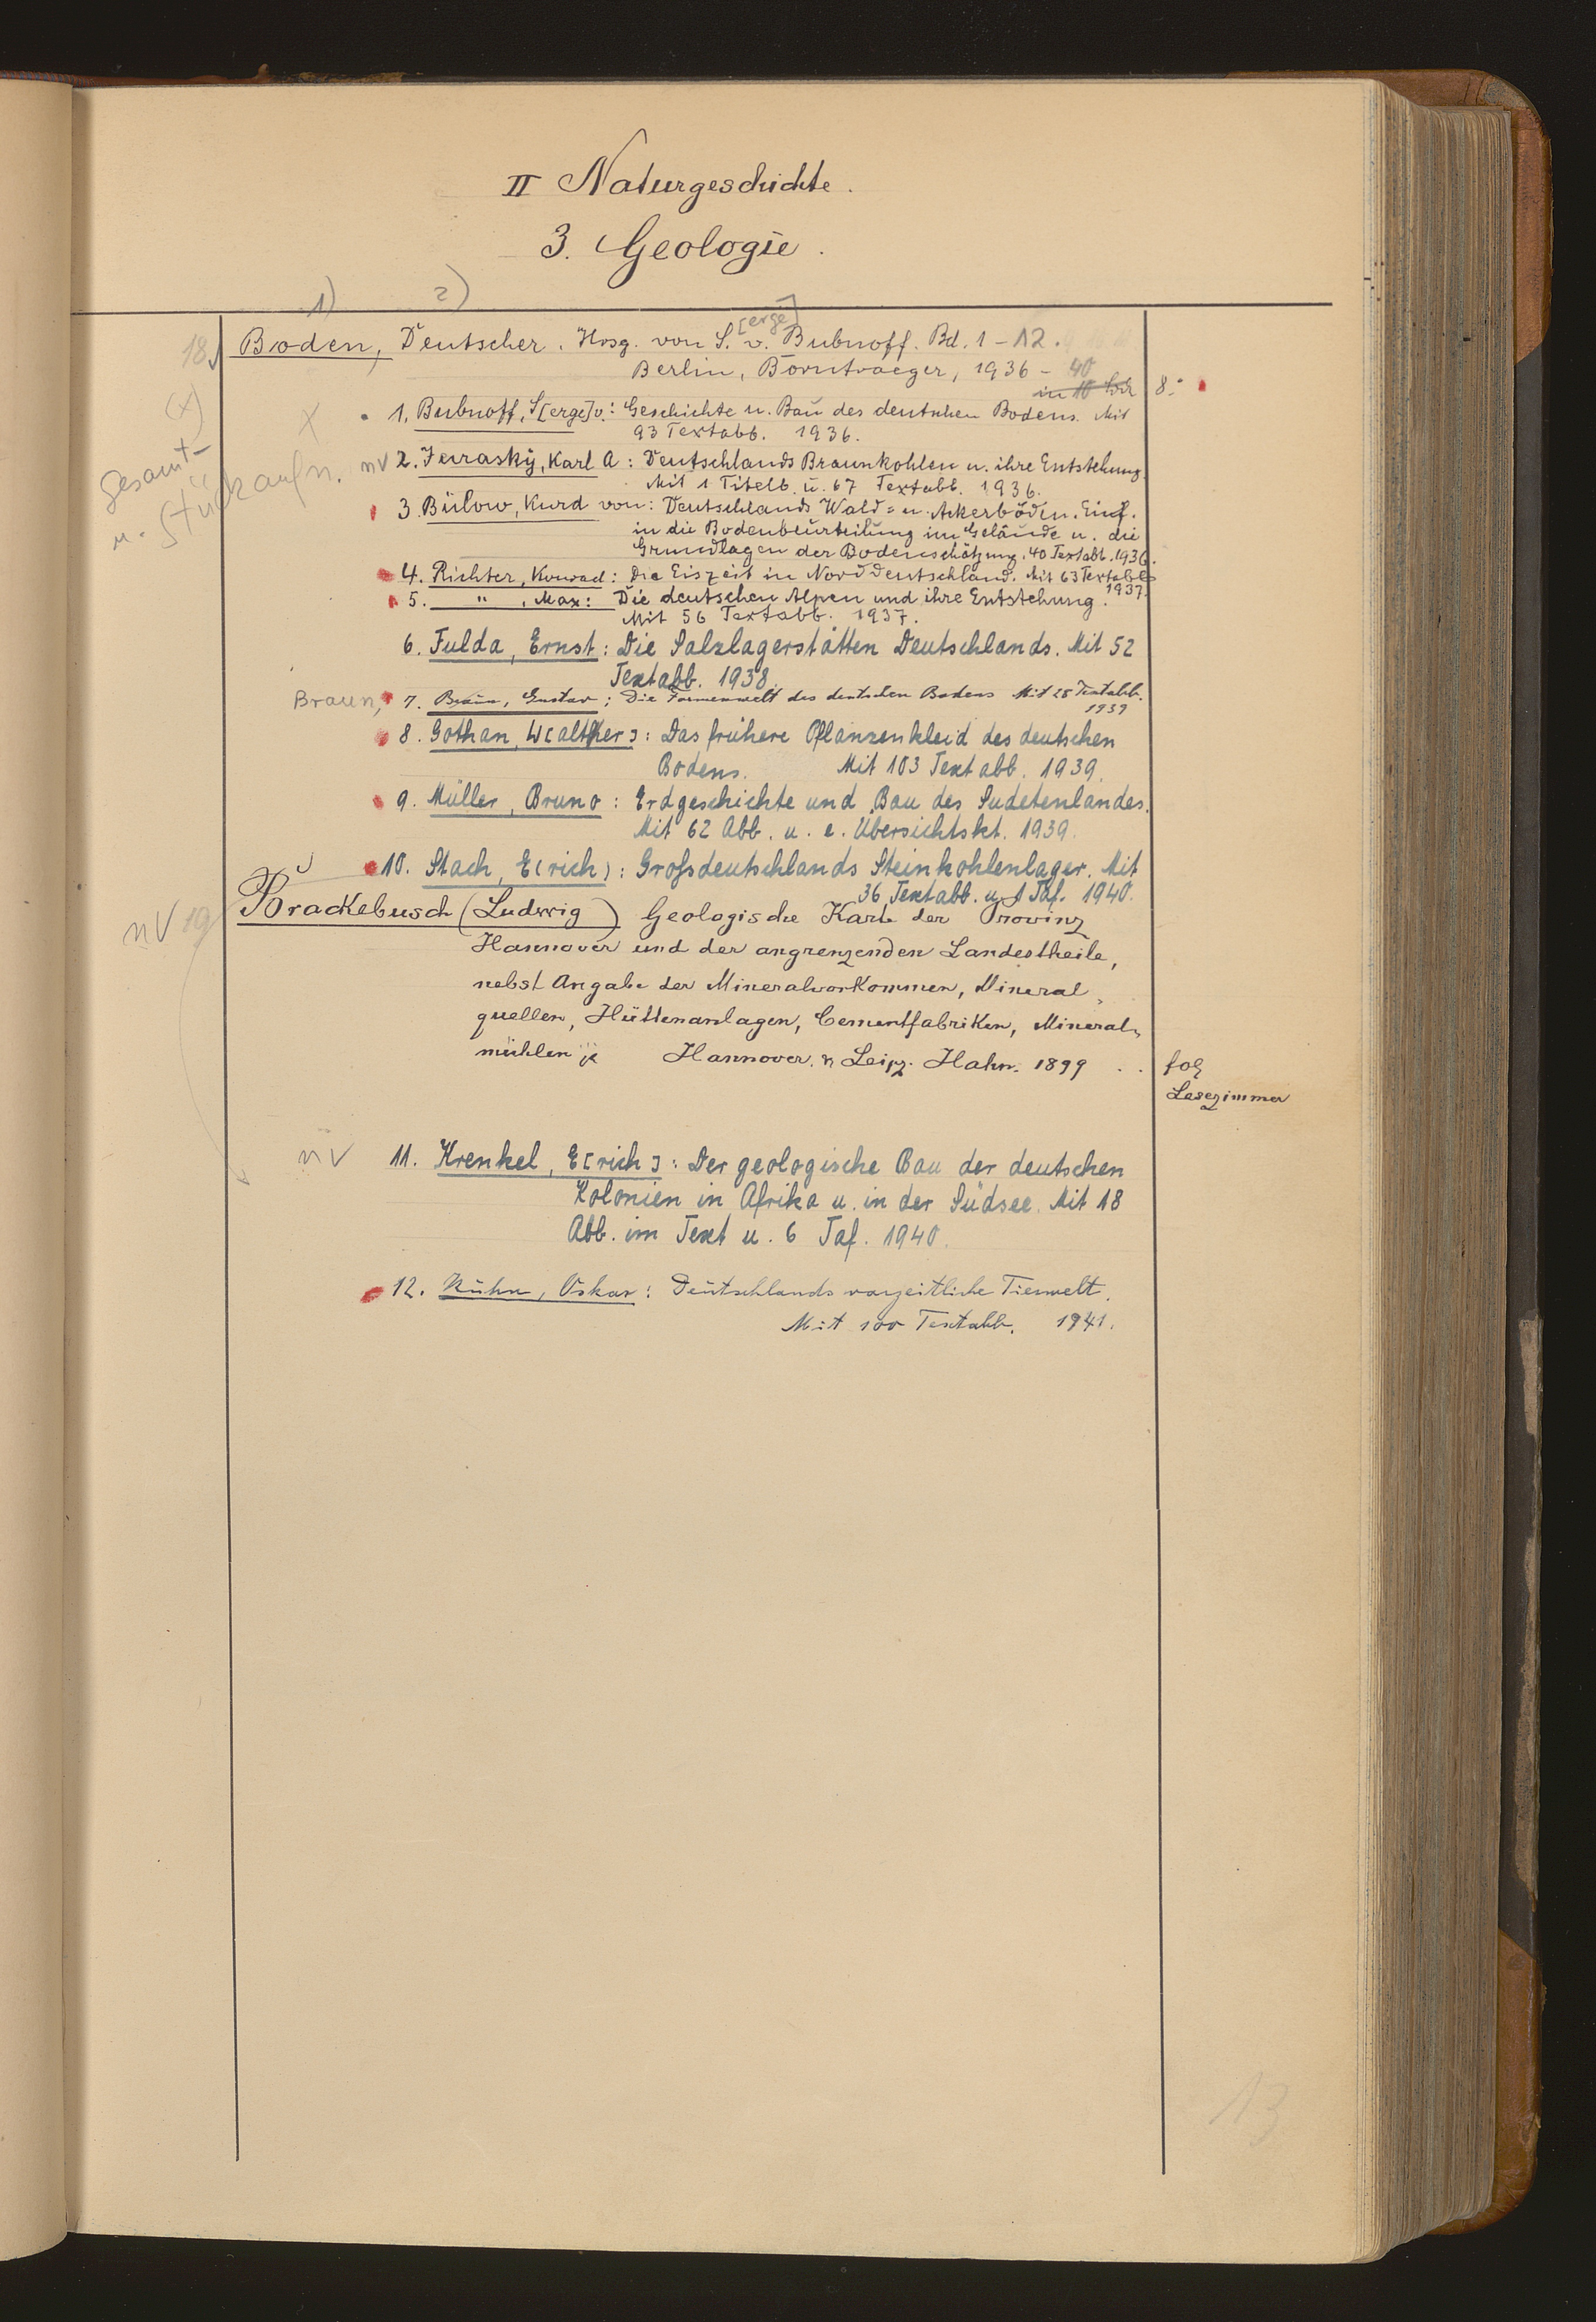 II Naturgeschichte.
3. Geologie.
1) 2)
[erge]
18. Boden, Deutscher. Hrsg. von S. v. Bubnoff. Bd. 1 - 12.
Berlin, Borntraeger, 1936 - 40
in 10 8.°
(x) x
Gesamt-
u. Stückaufn.
1. Bubnoff, S[erge] v.: Geschichte u. Bau des deutschen Bodens. Mit
93 Textabb. 1936.
nV 2. Jurasky, Karl A: Deutschlands Braunkohlen u. ihre Entstehung
Mit 1 Titelb. u. 67 Textabb. 1936.
3. Bülow, Kurd von: Deutschlands Wald= u. Ackerböden. Einf.
in die Bodenbeurteilung im Gelände u. die
Grundlagen der Bodenschätzung. 40 Textabb. 1936.
4. Richter, Konrad: Die Eiszeit in Norddeutschland. Mit 63 Textabb
1937.
5. " , Max: Die deutschen Alpen und ihre Entstehung.
Mit 56 Textabb. 1937.
6. Fulda, Ernst: Die Salzlagerstätten Deutschlands. Mit 52
Textabb. 1938.
Braun, 7. Braun, Gustav; Die Formenwelt des deutschen Bodens Mit 25 Textabb.
1939
8. Gothan, W[alther]: Das frühere Pflanzenkleid des deutschen
Bodens. Mit 103 Textabb. 1939.
9. Müller, Bruno: Erdgeschichte und Bau des Sudetenlandes.
Mit 62 Abb. u. e. Übersichtskt. 1939.
10. Stach, E(rich): Großdeutschlands Steinkohlenlager. Mit
36 Textabb. u. 1 Taf. 1940.
nV 19 Brackebusch (Ludwig) Geologische Karte der Provinz
Hannover und der angrenzenden Landestheile,
nebst Angabe der Mineralvorkommen, Mineral
quellen, Hüttenanlagen, Cementfabriken, Mineral
mühlen Hannover. & Leipz. Hahn. 1899 . . fol
Lesezimmer
nV 11. Krenkel, E[rich]: Der geologische Bau der deutschen
Kolonien in Afrika u. in der Südsee. Mit 18
Abb. im Text u. 6 Taf. 1940.
12. Kühn, Oskar: Deutschlands vorzeitliche Tierwelt.
Mit 100 Textabb. 1941.
13